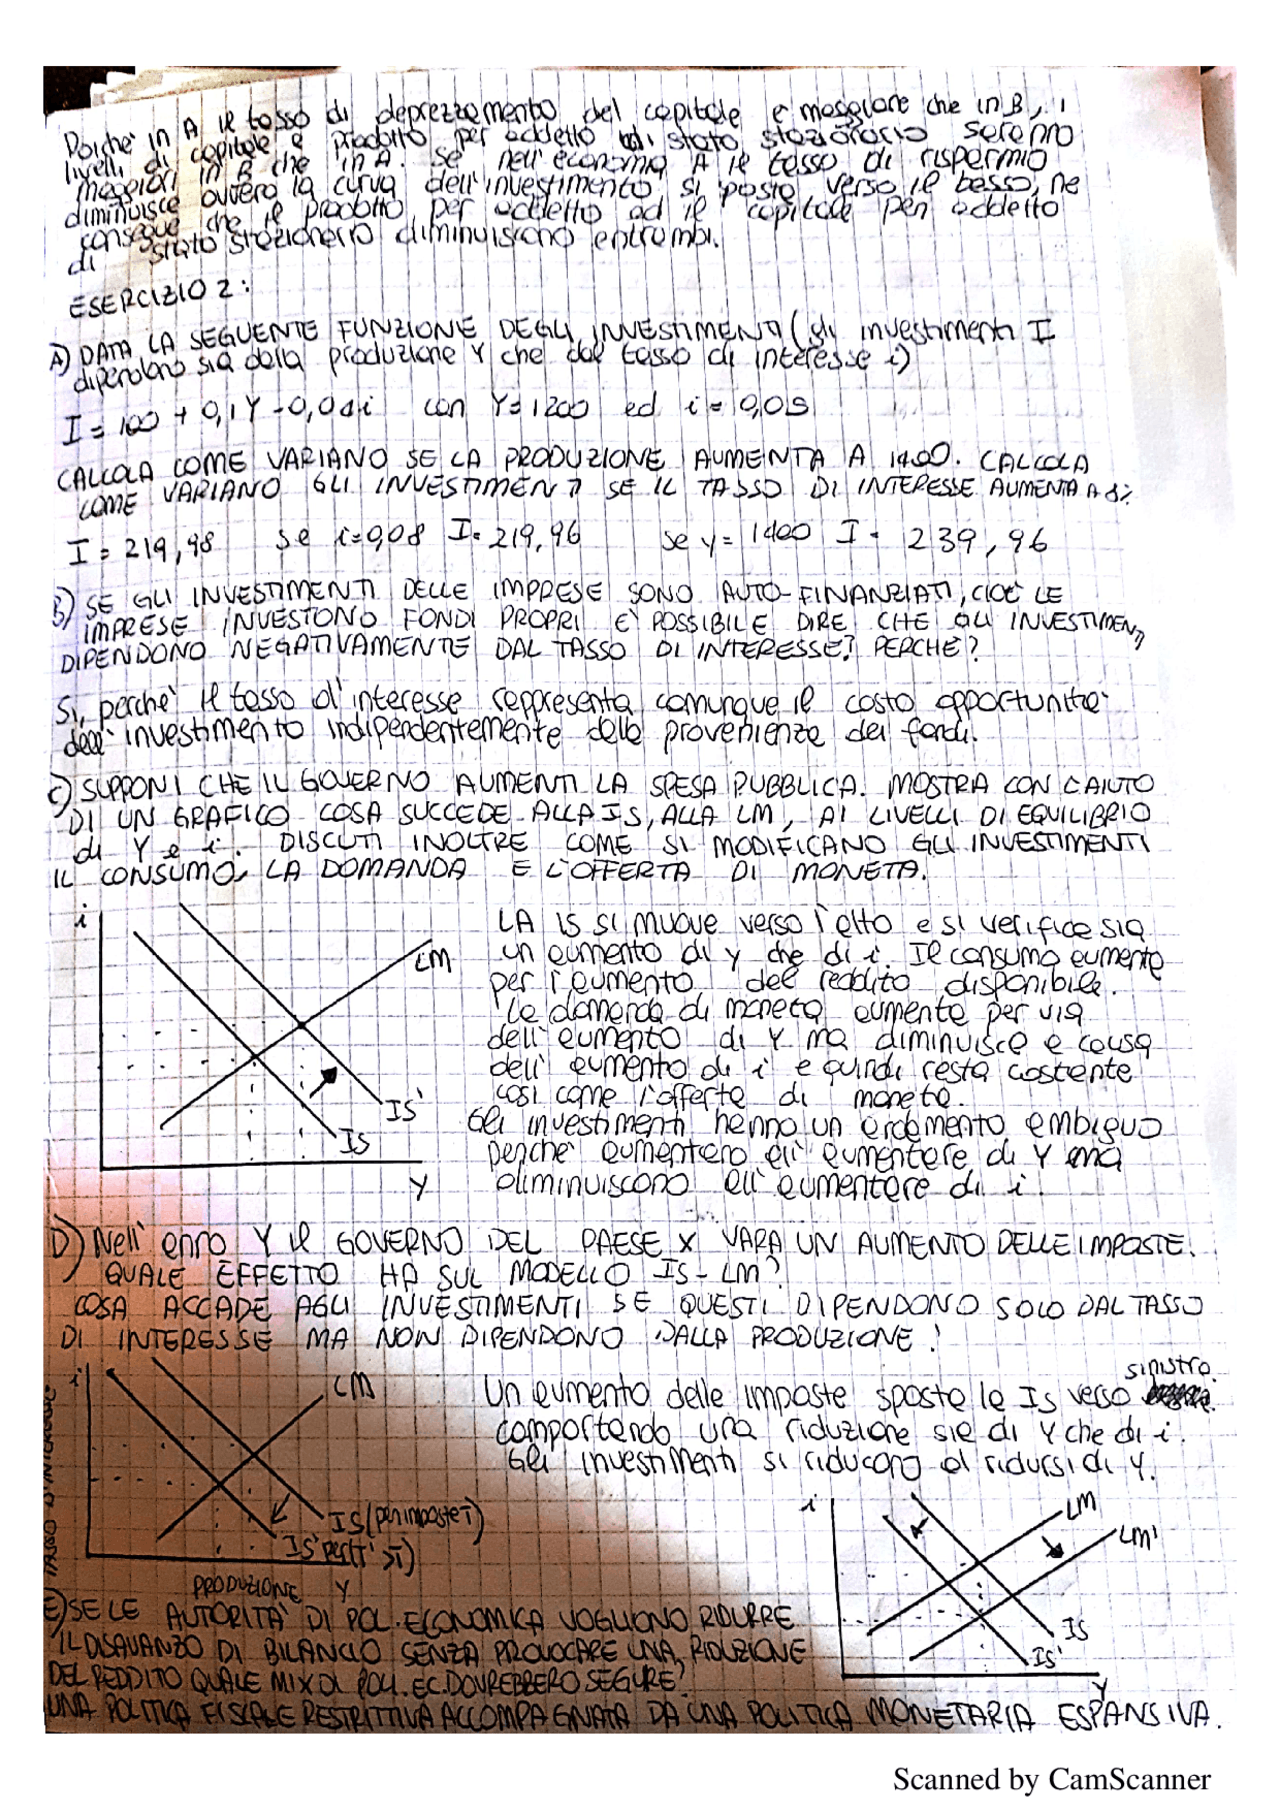 Poiché in A il tasso di deprezzamento del capitale è maggiore che in B, i
livelli di capitale e prodotto per addetto di stato stazionario saranno
maggiori in B che in A. Se nell'economia A il tasso di risparmio
diminuisce ovvero la curva dell'investimento si sposta verso il basso, ne
consegue che il prodotto per addetto ed il capitale per addetto
di stato stazionario diminuiscono entrambi.
ESERCIZIO 2:
A) DATA LA SEGUENTE FUNZIONE DEGLI INVESTIMENTI (gli investimenti I
dipendono sia dalla produzione Y che dal tasso di interesse i)
I = 100 + 0,1Y - 0,04i con Y=1200 ed i = 0,05
CALCOLA COME VARIANO SE LA PRODUZIONE AUMENTA A 1400. CALCOLA
COME VARIANO GLI INVESTIMENTI SE IL TASSO DI INTERESSE AUMENTA A 8%
I = 219,98 se i=0,08 I= 219,96 se y= 1400 I = 239,96
B) SE GLI INVESTIMENTI DELLE IMPRESE SONO AUTO-FINANZIATI, CIOÈ LE
IMPRESE INVESTONO FONDI PROPRI È POSSIBILE DIRE CHE GLI INVESTIMENTI
DIPENDONO NEGATIVAMENTE DAL TASSO DI INTERESSE? PERCHÉ?
Si, perché il tasso d'interesse rappresenta comunque il costo opportunità
dell'investimento indipendentemente dalla provenienza dei fondi.
C) SUPPONI CHE IL GOVERNO AUMENTI LA SPESA PUBBLICA. MOSTRA CON L'AIUTO
DI UN GRAFICO COSA SUCCEDE ALLA IS, ALLA LM, AI LIVELLI DI EQUILIBRIO
di Y e i. DISCUTI INOLTRE COME SI MODIFICANO GLI INVESTIMENTI
IL CONSUMO, LA DOMANDA E L'OFFERTA DI MONETA.
i
LM
IS'
IS
Y
LA IS SI MUOVE verso l'alto e si verifica sia
un aumento di y che di i. Il consumo aumenta
per l'aumento del reddito disponibile.
La domanda di moneta aumenta per via
dell'aumento di Y ma diminuisce a causa
dell'aumento di i e quindi resta costante
così come l'offerta di moneta.
Gli investimenti hanno un andamento ambiguo
perché aumentano all'aumentare di Y ma
diminuiscono all'aumentare di i.
D) Nell'anno Y il GOVERNO DEL PAESE X VARA UN AUMENTO DELLE IMPOSTE.
QUALE EFFETTO HA SUL MODELLO IS-LM?
COSA ACCADE AGLI INVESTIMENTI SE QUESTI DIPENDONO SOLO DAL TASSO
DI INTERESSE MA NON DIPENDONO DALLA PRODUZIONE?
i
LM
IS (per imposte T)
IS' per (T' > T)
TASSO D'INTERESSE
PRODUZIONE Y
sinistra.
Un aumento delle imposte sposta la IS verso
comportando una riduzione sia di Y che di i.
Gli investimenti si riducono al ridursi di Y.
i
LM
LM'
IS
IS'
Y
E) SE LE AUTORITÀ DI POL. ECONOMICA VOGLIONO RIDURRE
IL DISAVANZO DI BILANCIO SENZA PROVOCARE UNA RIDUZIONE
DEL REDDITO QUALE MIX DI POL. EC. DOVREBBERO SEGUIRE?
UNA POLITICA FISCALE RESTRITTIVA ACCOMPAGNATA DA UNA POLITICA MONETARIA ESPANSIVA.
Scanned by CamScanner